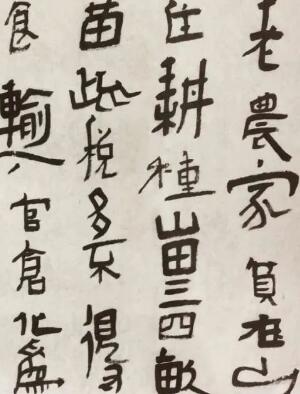 老農家貧在山
住耕種山田三四畝
苗疏稅多不得
食輸入官倉化為